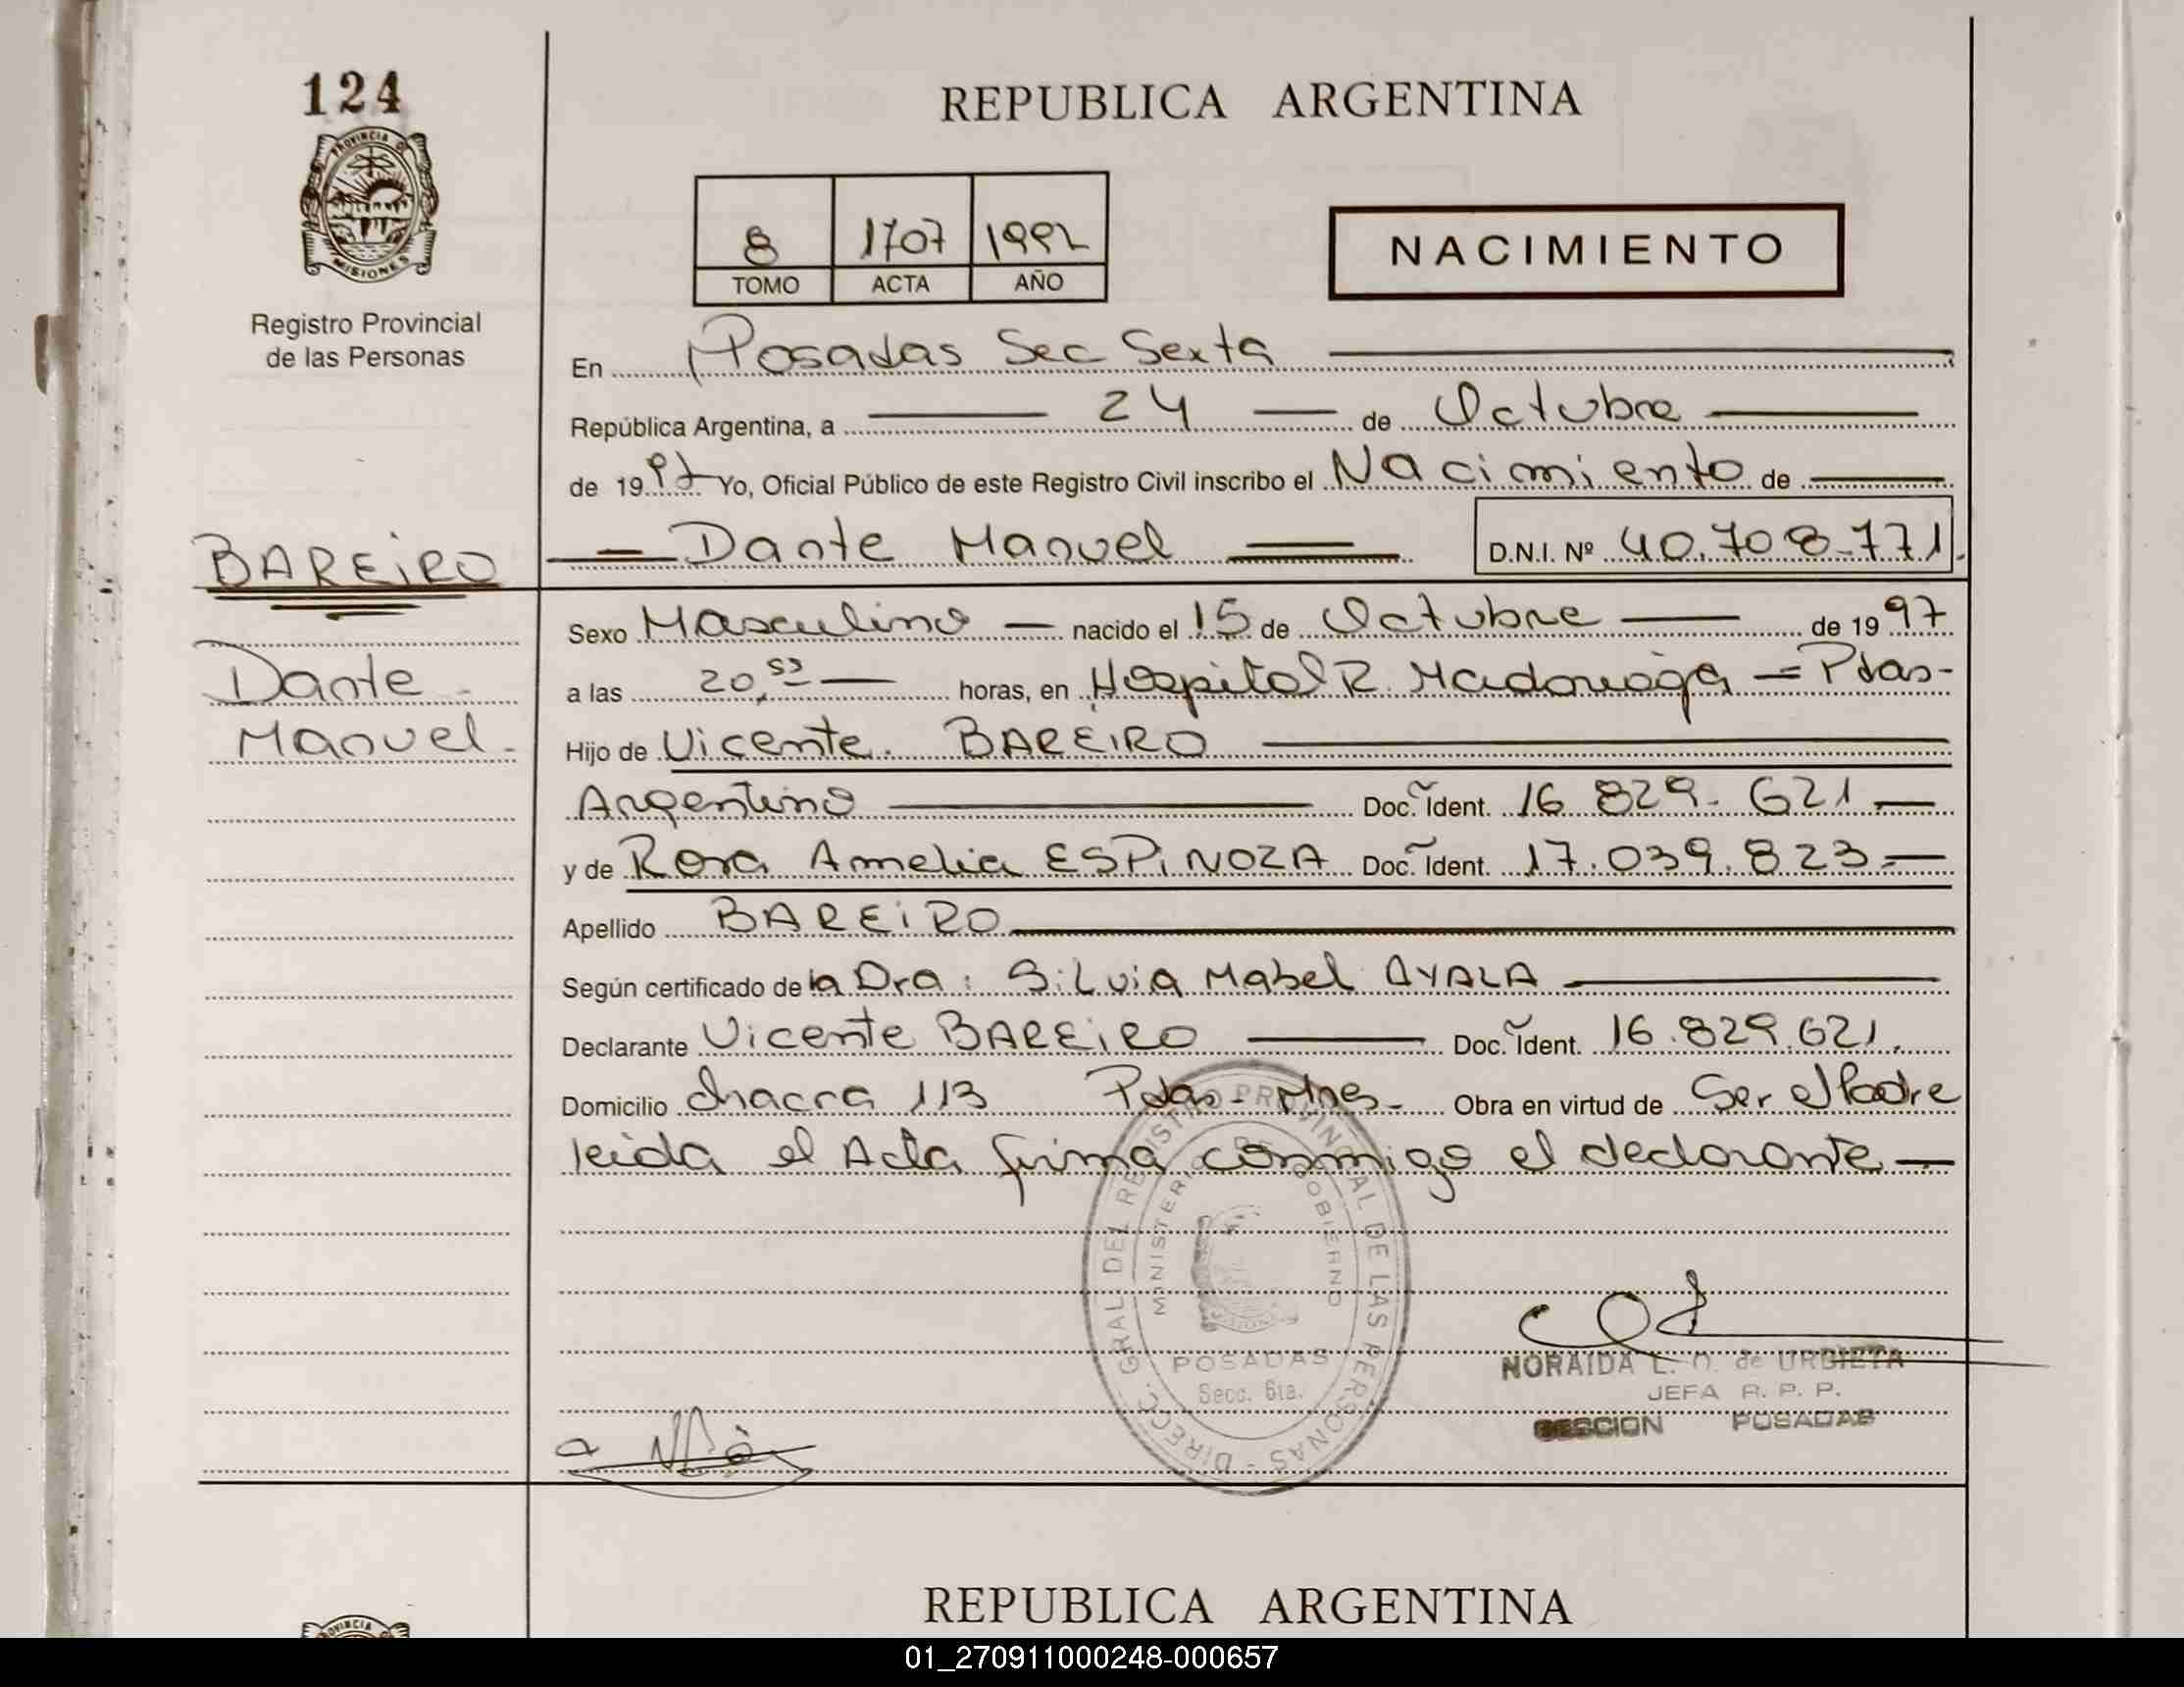 124
PROVINCIA DE
MISIONES
Registro Provincial
de las Personas
BAREIRO
Dante
Manuel.
REPUBLICA ARGENTINA
8 1707 1997
TOMO ACTA AÑO
NACIMIENTO
En Posadas Sec Sexta
República Argentina, a 24 de Octubre
de 1997 Yo, Oficial Público de este Registro Civil inscribo el Nacimiento de
Dante Manuel D.N.I. Nº 40.708.771.
Sexo Masculino nacido el 15 de Octubre de 1997
a las 20,53 horas, en Hospital R. Madariaga = Pdas-
Hijo de Vicente BAREIRO
Argentino Doc. Ident. 16.829.621
y de Rosa Amelia ESPINOZA Doc. Ident. 17.039.823
Apellido BAREIRO
Según certificado de la Dra: Silvia Mabel AYALA
Declarante Vicente BAREIRO Doc. Ident. 16.829.621.
Domicilio chacra 113 Pdas - Mnes- Obra en virtud de Ser el Padre
leida el Acta firma conmigo el declarante
DIRECC. GRAL DEL REGISTRO PROVINCIAL DE LAS PERSONAS -
MINISTERIO DE GOBIERNO
POSADAS
Secc. 6ta.
NORAIDA L. O. de URBIETA
JEFA R. P. P.
SECCION POSADAS
REPUBLICA ARGENTINA
PROVINCIA
01_270911000248-000657